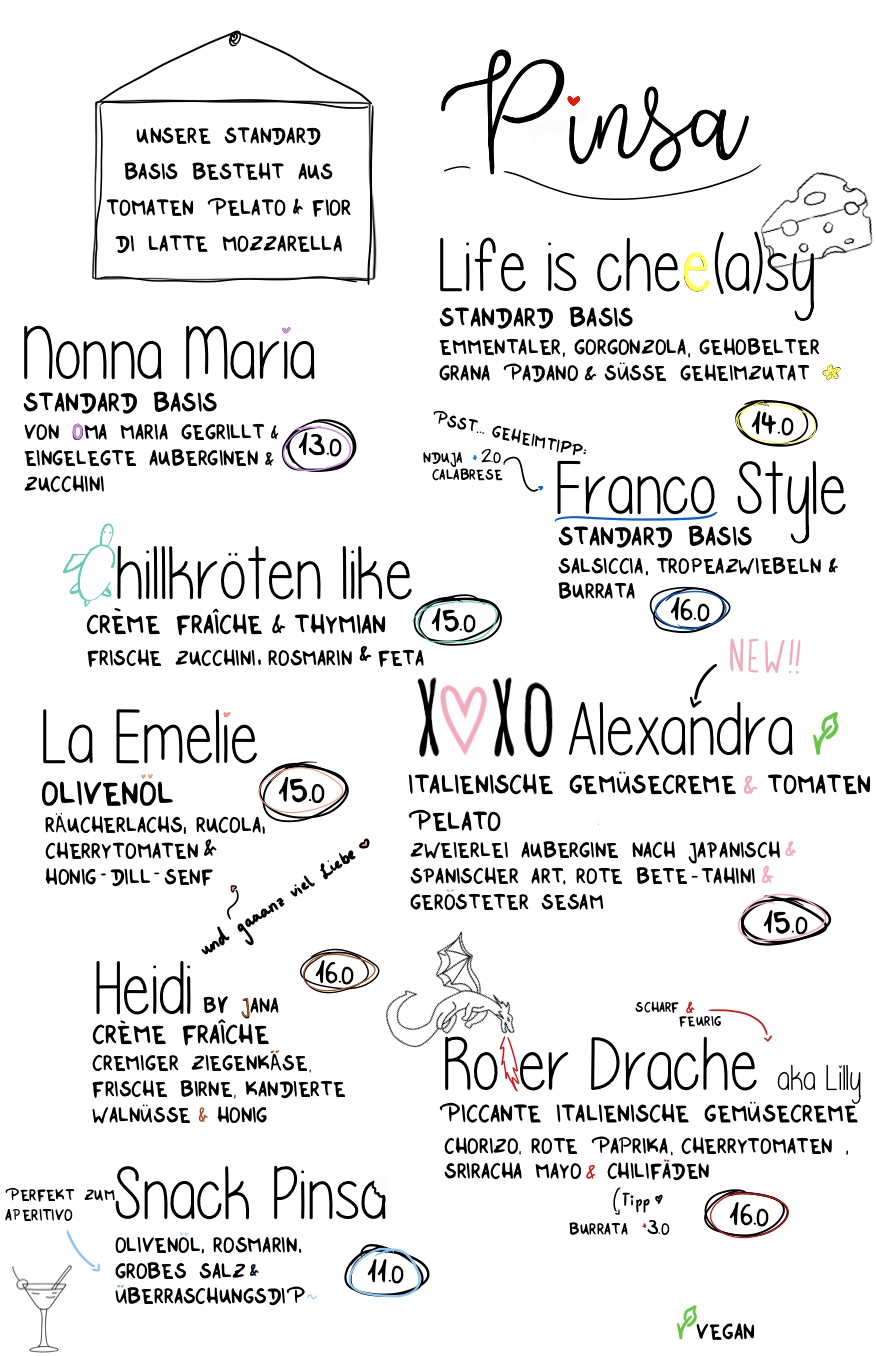 UNSERE STANDARD
BASIS BESTEHT AUS
TOMATEN PELATO & FIOR
DI LATTE MOZZARELLA
Pinsa
Life is chee(a)sy
STANDARD BASIS
EMMENTALER, GORGONZOLA, GEHOBELTER
GRANA PADANO & SÜSSE GEHEIMZUTAT
14.0
Nonna Maria
STANDARD BASIS
VON OMA MARIA GEGRILLT &
EINGELEGTE AUBERGINEN &
ZUCCHINI
13.0
PSST... GEHEIMTIPP:
NDUJA +2.0
CALABRESE
Franco Style
STANDARD BASIS
SALSICCIA, TROPEAZWIEBELN &
BURRATA
16.0
Chillkröten like
CRÈME FRAÎCHE & THYMIAN
FRISCHE ZUCCHINI, ROSMARIN & FETA
15.0
NEW!!
X♡XO Alexandra
ITALIENISCHE GEMÜSECREME & TOMATEN
PELATO
ZWEIERLEI AUBERGINE NACH JAPANISCH &
SPANISCHER ART, ROTE BETE-TAHINI &
GERÖSTETER SESAM
15.0
La Emelie
OLIVENÖL
RÄUCHERLACHS, RUCOLA,
CHERRYTOMATEN &
HONIG-DILL-SENF
15.0
und gaaanz viel Liebe
Heidi BY JANA
CRÈME FRAÎCHE
CREMIGER ZIEGENKÄSE,
FRISCHE BIRNE, KANDIERTE
WALNÜSSE & HONIG
16.0
SCHARF &
FEURIG
Roter Drache aka Lilly
PICCANTE ITALIENISCHE GEMÜSECREME
CHORIZO, ROTE PAPRIKA, CHERRYTOMATEN ,
SRIRACHA MAYO & CHILIFÄDEN
Tipp
BURRATA +3.0
16.0
PERFEKT ZUM
APERITIVO
Snack Pinsa
OLIVENÖL, ROSMARIN,
GROBES SALZ &
ÜBERRASCHUNGSDIP~
11.0
VEGAN